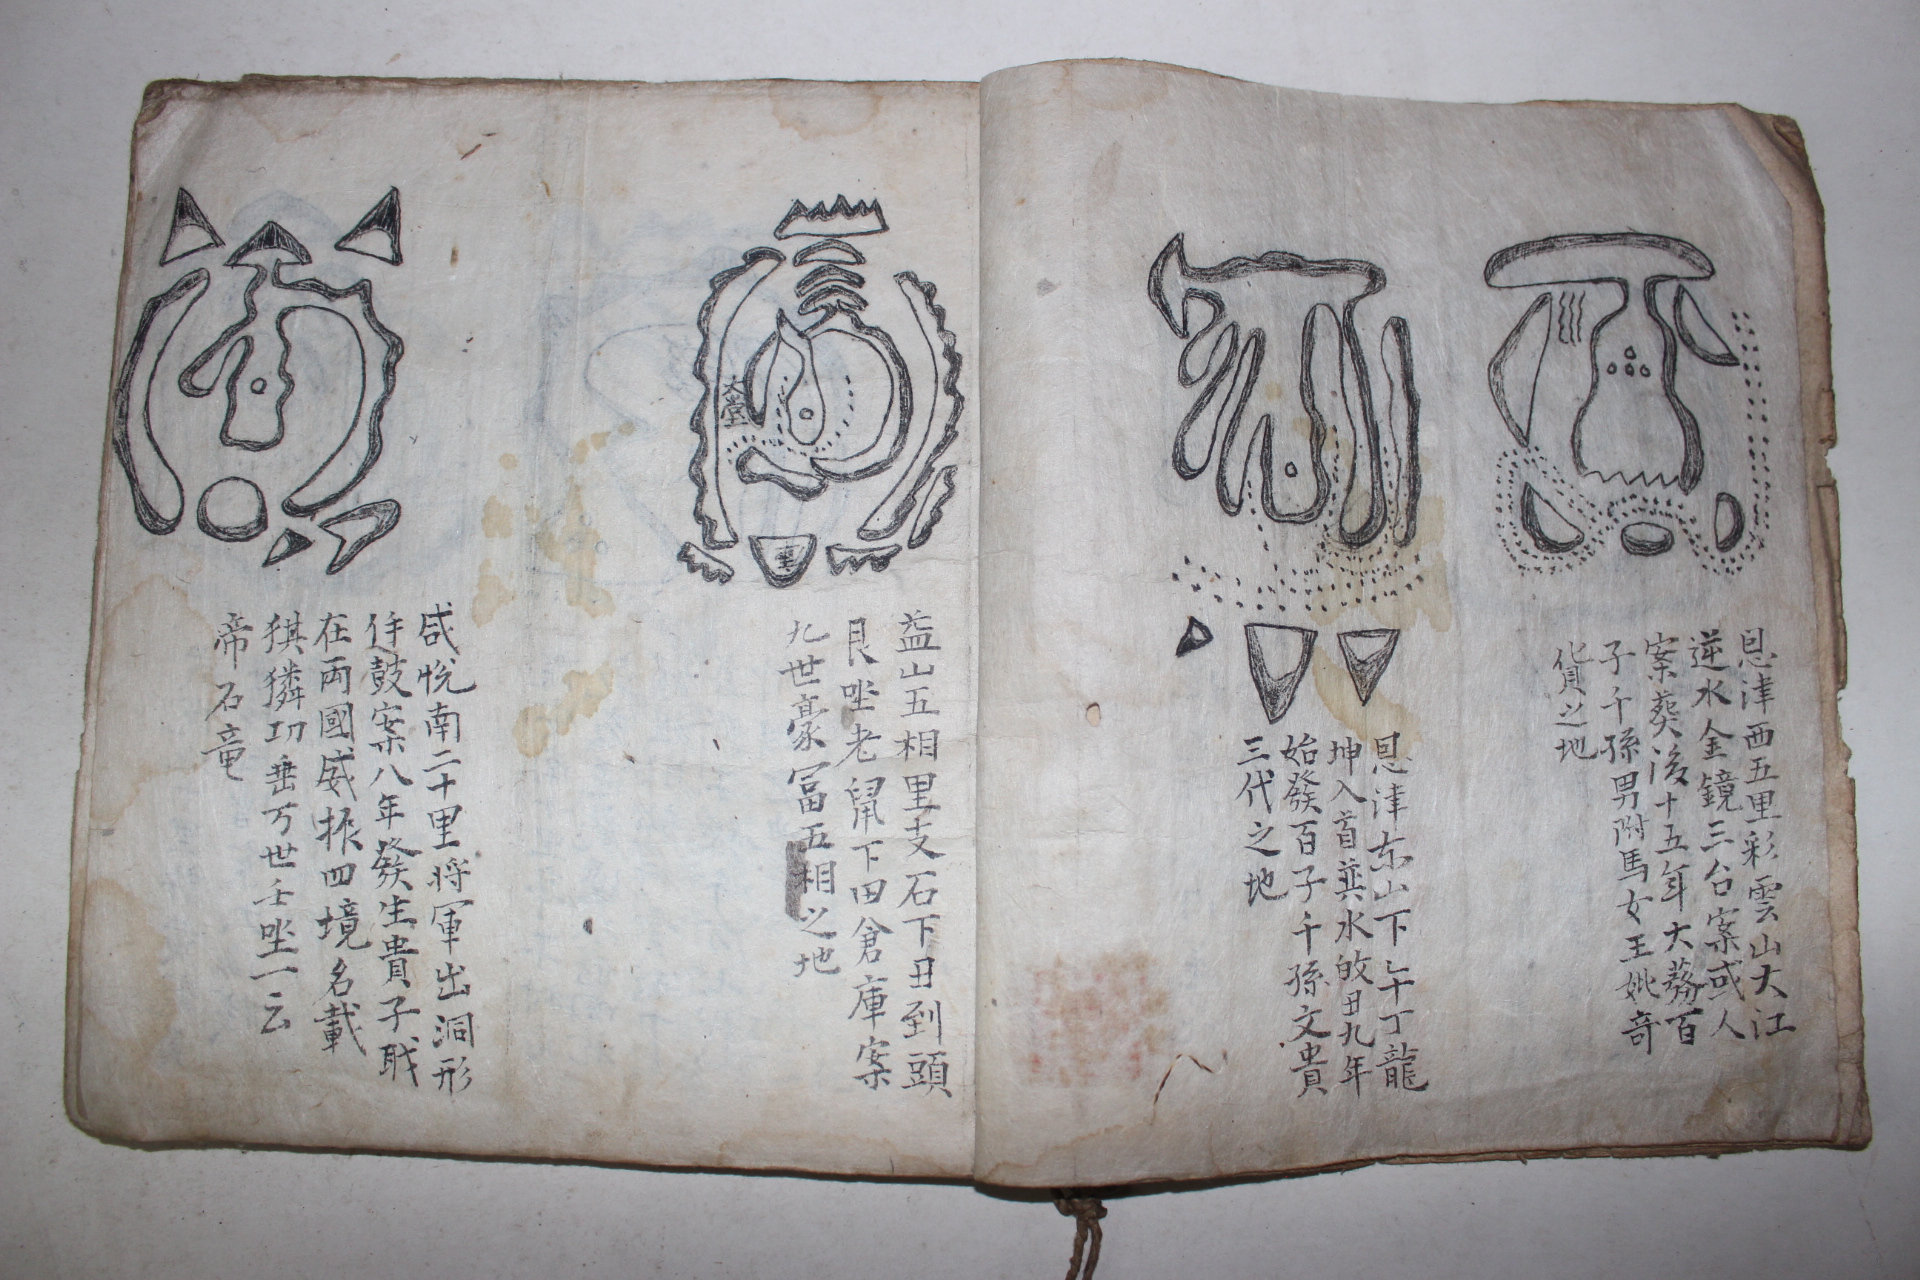 恩津西五里彩雲山大江
逆水金鏡三台案或人
案葬後十五年大發百
子千孫男附馬女王妣奇
貨之地
恩津东山下午丁龍
坤入首巽水破丑九年
始發百子千孫文貴
三代之地
益山五相里支石下丑到頭
艮坐老鼠下田倉庫案
九世豪冨五相之地
大堂
咸悅南二十里将軍出洞形
鼓案八年發生貴子職
在兩國威振四境名載
猉獜功垂万世壬坐一云
帝石竜